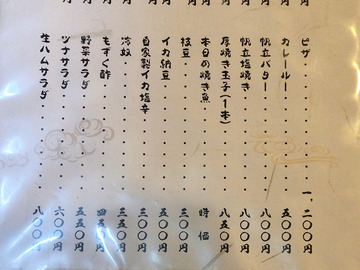 ピザ・・・・・・・・・・一、二〇〇円
カレールー・・・・・・・・五〇〇円
帆立バター・・・・・・・・八〇〇円
帆立塩焼き・・・・・・・・八〇〇円
厚焼き玉子(一本)・・・・・八五〇円
本日の焼き魚・・・・・・・時価
枝豆・・・・・・・・・・三〇〇円
イカ納豆・・・・・・・・・五〇〇円
自家製イカ塩辛・・・・・・三〇〇円
冷奴・・・・・・・・・・三五〇円
もずく酢・・・・・・・・・四五〇円
野菜サラダ・・・・・・・・五五〇円
ツナサラダ・・・・・・・・六〇〇円
生ハムサラダ・・・・・・・八〇〇円